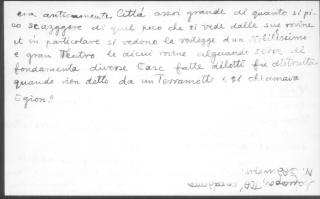 era anticamente Città assai grande di quanto si può
scorgere di quel poco che si vede dalle sue rovine
et in particolare si vedono le vestigge d'un Nobilissimo
e gran Teatro le dicui rovine alquando serve di
fondamenta diverse Case fatte di lotti fu distrutta
quando vien detto da un Terramotto e si chiamava
Egion."